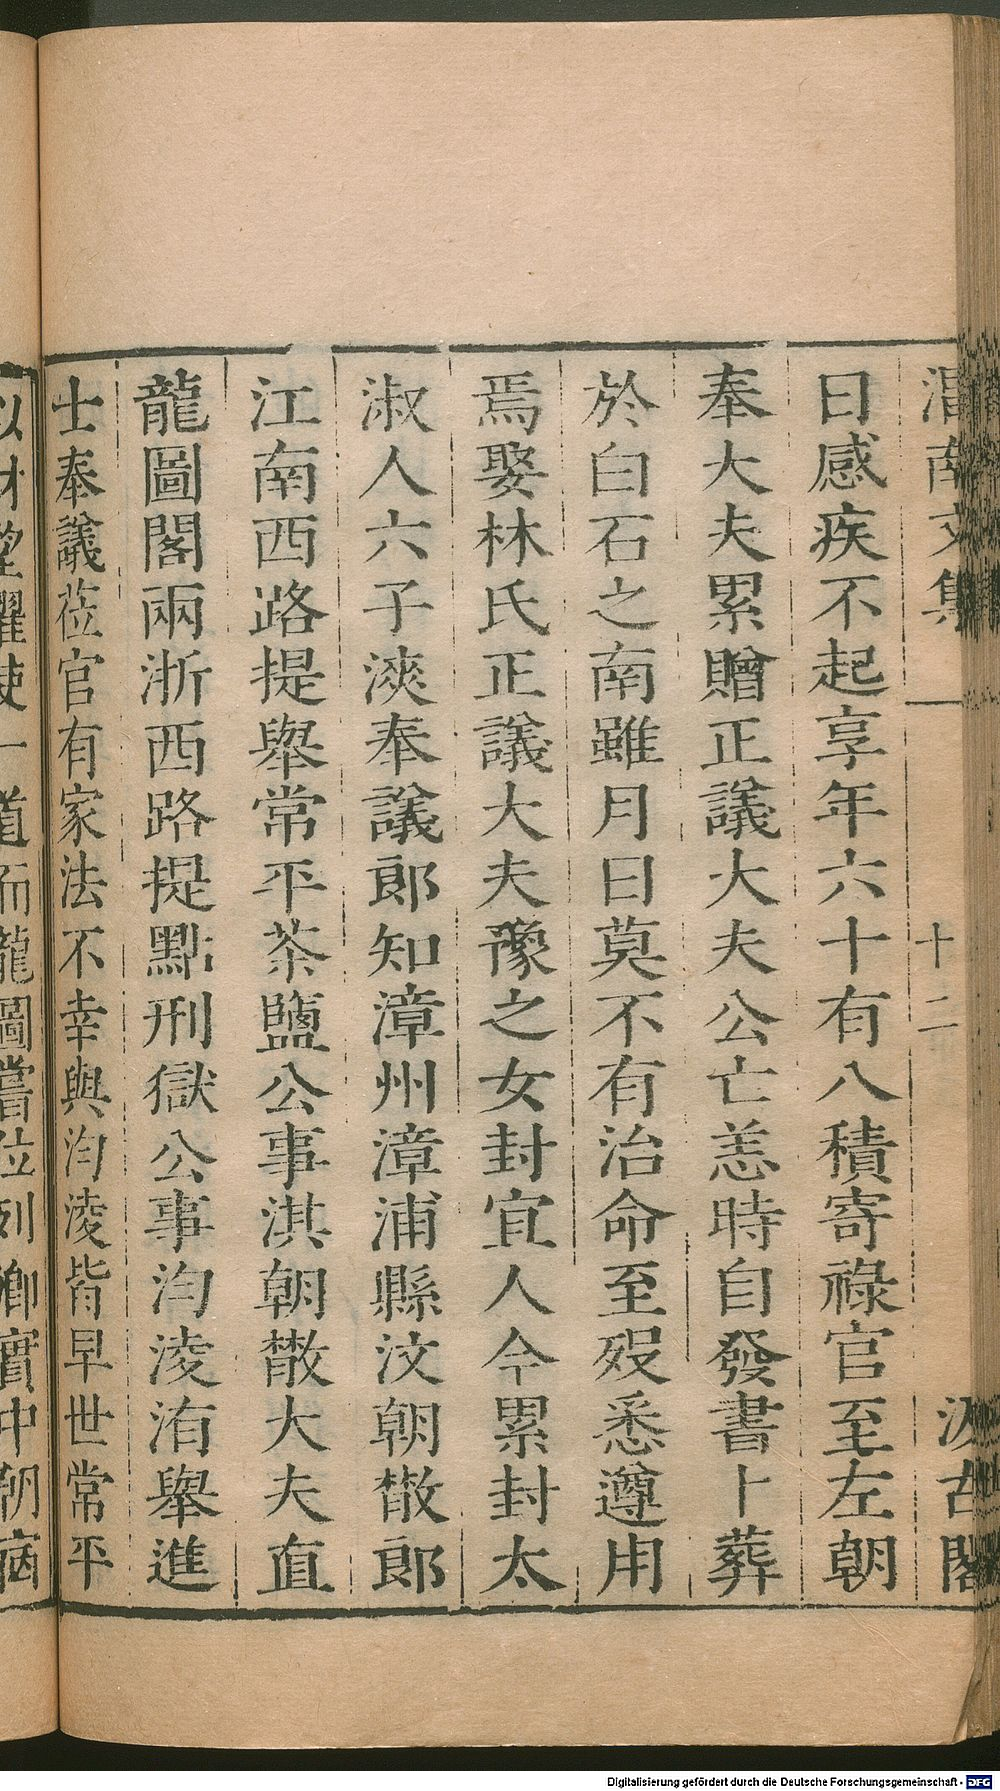 渭南文集 十二 汲古閣
日感疾不起享年六十有八積寄祿官至左朝
奉大夫累贈正議大夫公亡恙時自發書卜葬
於白石之南雖月日莫不有治命至歿悉遵用
焉娶林氏正議大夫豫之女封宜人今累封太
淑人六子浹奉議郎知漳州漳浦縣汶朝散郎
江南西路提舉常平茶鹽公事淇朝散大夫直
龍圖閣兩浙西路提點刑獄公事洵淩洧舉進
士奉議莅官有家法不幸與洵淩皆早世常平
以材望擢使一道而龍圖嘗位列卿實中朝
Digitalisierung gefördert durch die Deutsche Forschungsgemeinschaft - DFG